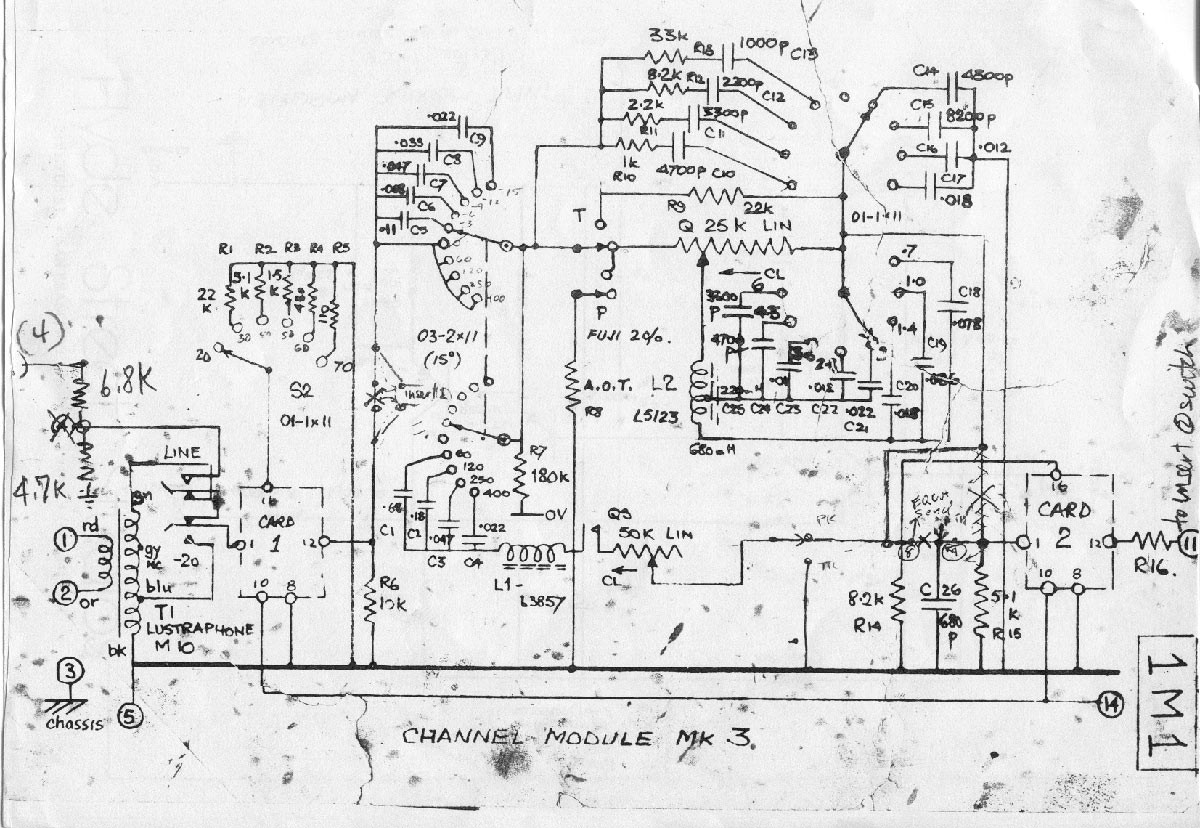 33k
R13
1000p
C13
8.2k
R12
2200p
C12
2.2k
R11
3300p
C11
1k
R10
4700p
C10
R9
22k
Q 25k LIN
C14
4300p
C15
8200p
C16
.012
C17
.018
01-1x11
.022
C9
.033
C8
.047
C7
.068
C6
.11
C5
-15
-12
60
120
250
400
T
P
FUJI 2%.
CL
6
3600
P
4.5
4700
P
.01
C25
C24
C23
C22
.018
.022
C21
C20
.018
.7
1.0
1.4
C18
.078
C19
L2
L5123
680mH
R1
R2
R3
R4
R5
22
K
5.1
K
1.5
K
110
20
30
50
60
70
S2
01-1x11
03-2x11
(15°)
A.O.T.
R8
(4)
6.8K
4.7K
LINE
-20
rd
1
2
or
gy
blu
bk
T1
LUSTRAPHONE
M10
16
CARD
1
1
12
10
8
R6
10K
60
120
250
400
.68
.18
.047
.022
C1
C2
C3
C4
R7
180k
0V
L1-
L3857
50K LIN
CL
8.2k
R14
C26
680
P
5.1
K
R15
16
CARD
2
1
12
10
8
R16.
11
to insert @ switch
3
chassis
5
14
CHANNEL MODULE MK 3.
1M1